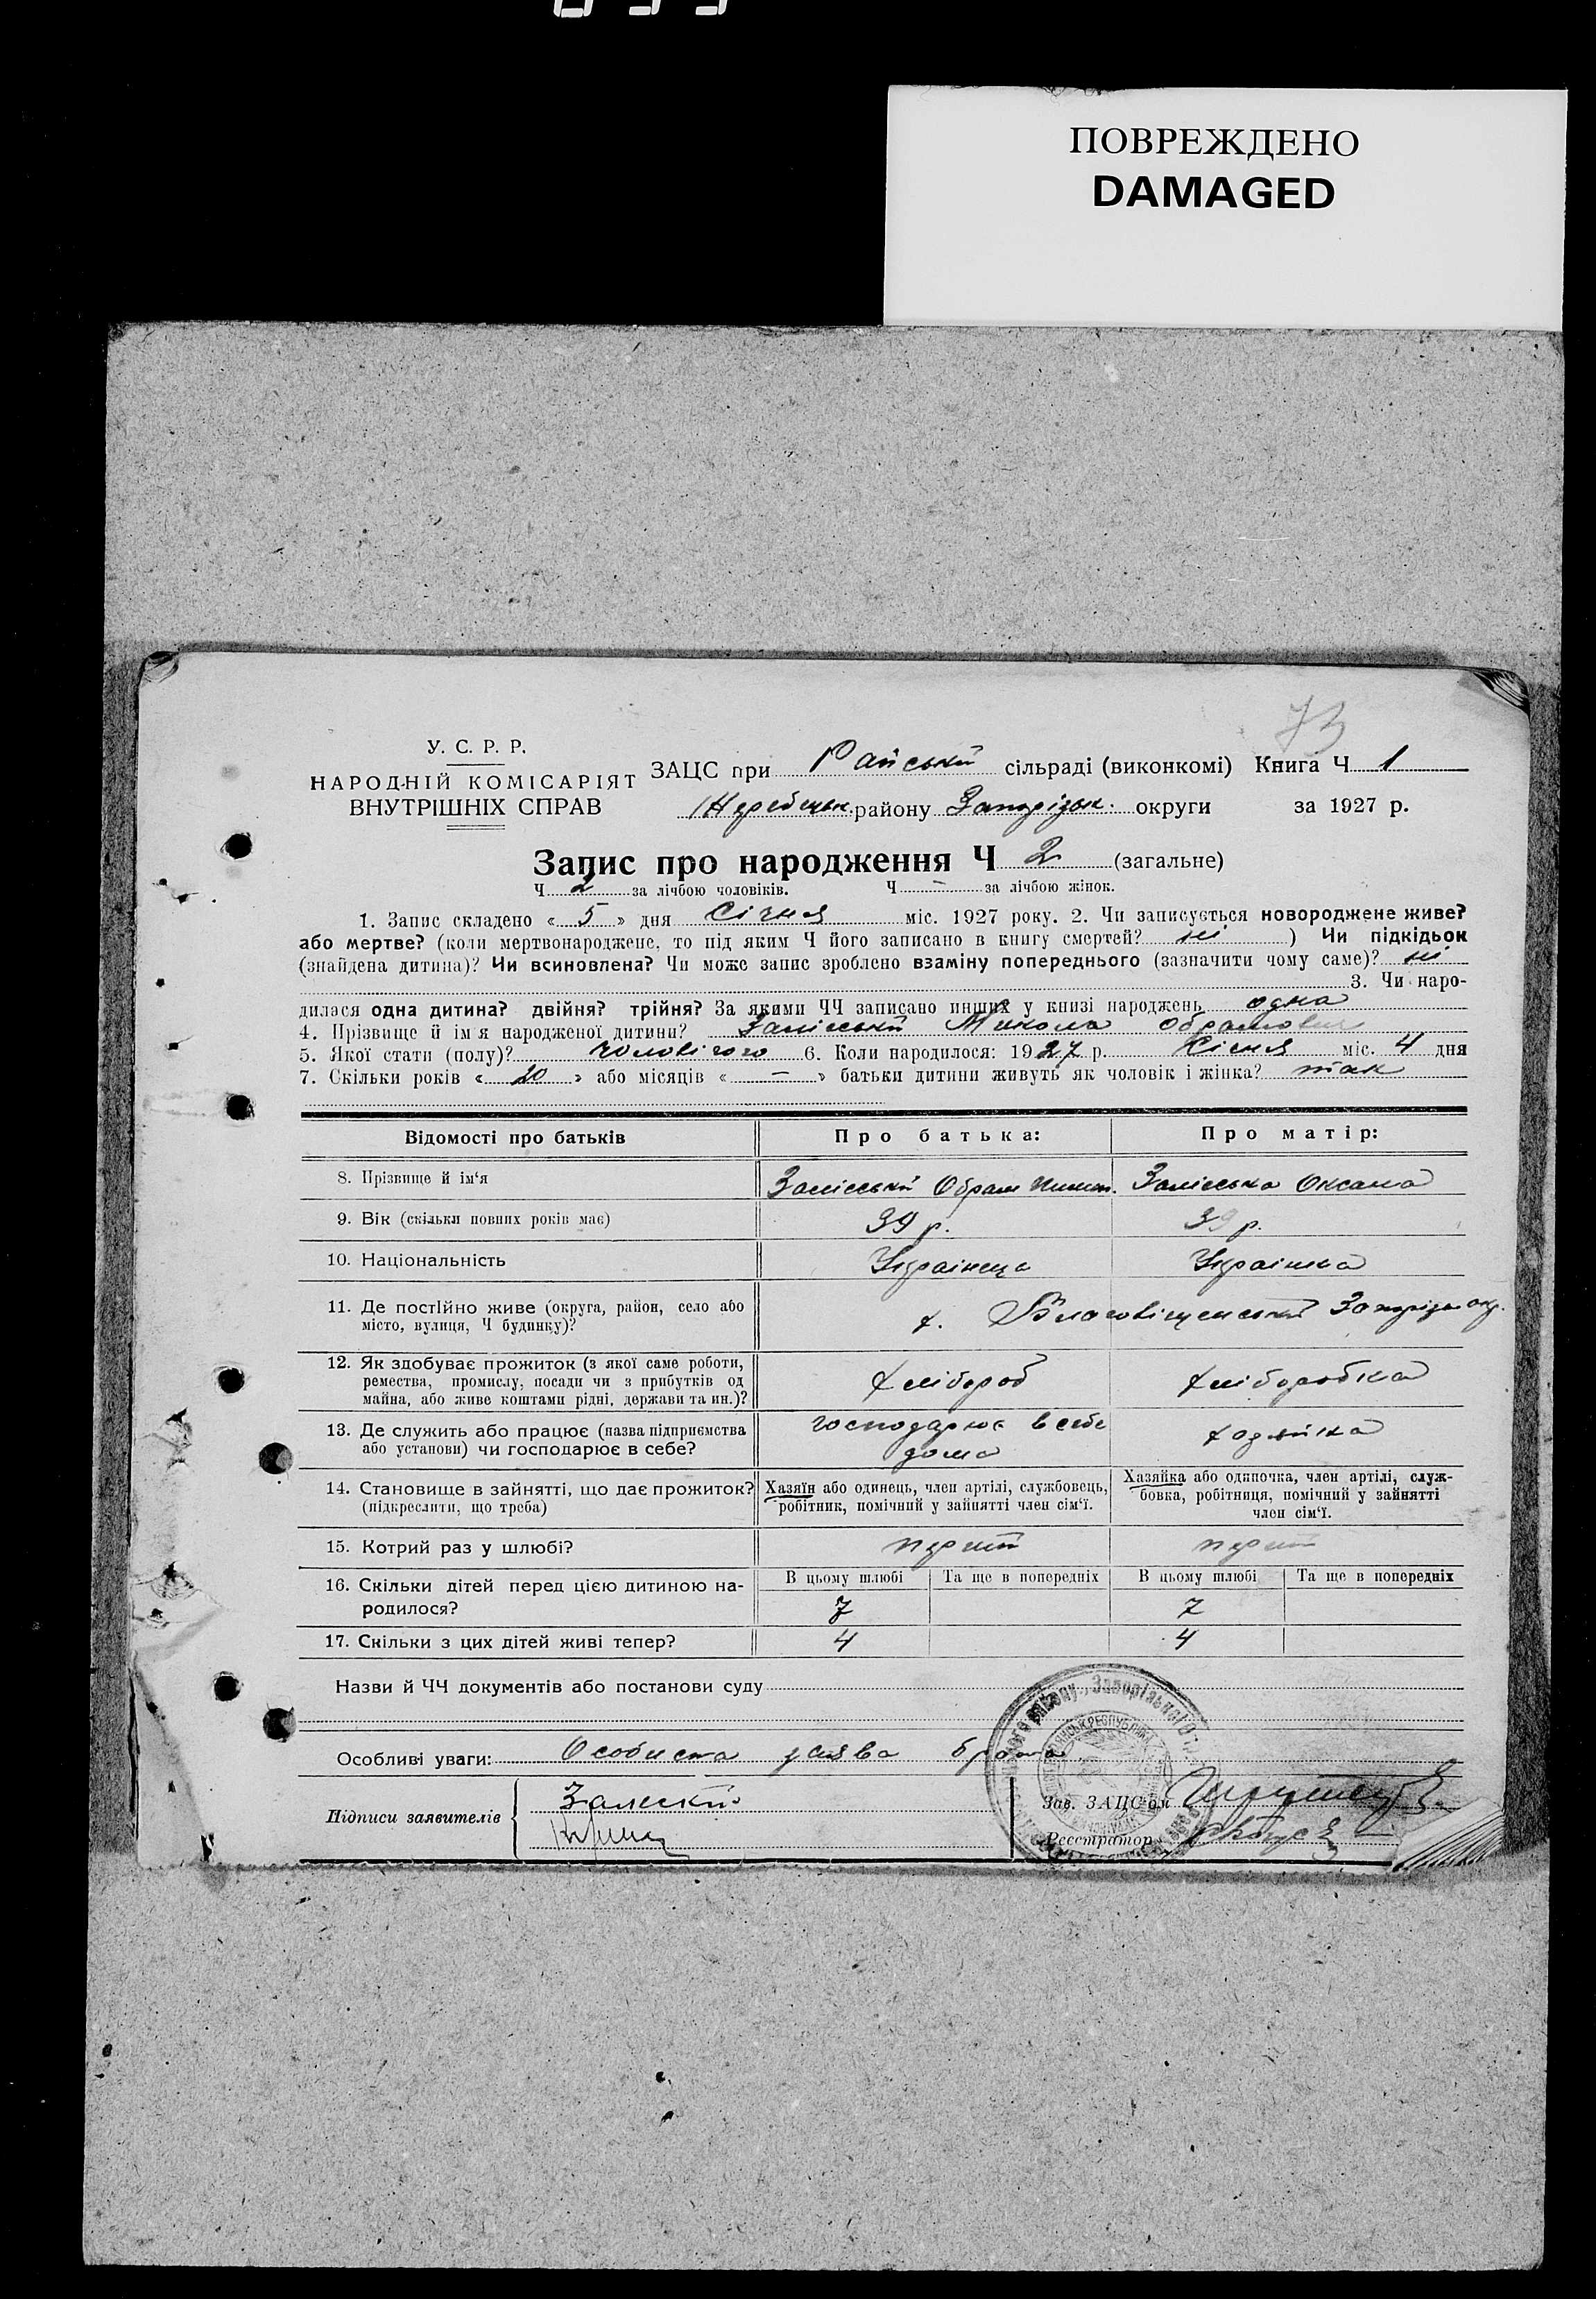 ПОВРЕЖДЕНО
DAMAGED
73
У. С. Р. Р.
НАРОДНІЙ КОМІСАРІЯТ
ВНУТРІШНІХ СПРАВ
ЗАЦС при Райській сільраді (виконкомі) Книга Ч 1
Жеребецьк. району Запорізьк. округи за 1927 р.
Запис про народження Ч 2 (загальне)
Ч 2 за лічбою чоловіків. Ч – за лічбою жінок.
1. Запис складено « 5 » дня Січня міс. 1927 року. 2. Чи записується новороджене живе?
або мертве? (коли мертвонароджене, то під яким Ч його записано в книгу смертей? ні ) Чи підкідьок
(знайдена дитина)? Чи всиновлена? Чи може запис зроблено взаміну попереднього (зазначити чому саме)? ні
3. Чи наро-
дилася одна дитина? двійня? трійня? За якими ЧЧ записано инших у книзі народжень одна
4. Прізвище й ім'я народженої дитини? Заліський Микола Обрамович
5. Якої стати (полу)? Чоловічого 6. Коли народилося: 1927 р. Січня міс. 4 дня
7. Скільки років « 20 » або місяців « – » батьки дитини живуть як чоловік і жінка? так
Відомості про батьків
Про батька:
Про матір:
8. Прізвище й ім'я
Заліський Обрам
Заліська Оксана
9. Вік (скільки повних років має)
39 р.
39 р.
10. Національність
Українець
Українка
11. Де постійно живе (округа, район, село або
місто, вулиця, Ч будинку)?
х. Благовіщенський Запорізьк окр.
12. Як здобуває прожиток (з якої саме роботи,
ремества, промислу, посади чи з прибутків од
майна, або живе коштами рідні, держави та ин.)?
Хлібороб
Хліборобка
13. Де служить або працює (назва підприємства
або установи) чи господарює в себе?
господарює в себе
дома
ходяйка
14. Становище в зайнятті, що дає прожиток?
(підкреслити, що треба)
Хазяїн або одинець, член артілі, службовець,
робітник, помічний у зайнятті член сім'ї.
Хазяйка або одиночка, член артілі, служ-
бовка, робітниця, помічний у зайнятті
член сім'ї.
15. Котрий раз у шлюбі?
перший
перший
16. Скільки дітей перед цією дитиною на-
родилося?
В цьому шлюбі
Та ще в попередніх
В цьому шлюбі
Та ще в попередніх
7
7
17. Скільки з цих дітей живі тепер?
4
4
Назви й ЧЧ документів або постанови суду
Особливі уваги: Особиста заява
Підписи заявителів
Залеский
Зав. ЗАЦС'ом
Реєстратор